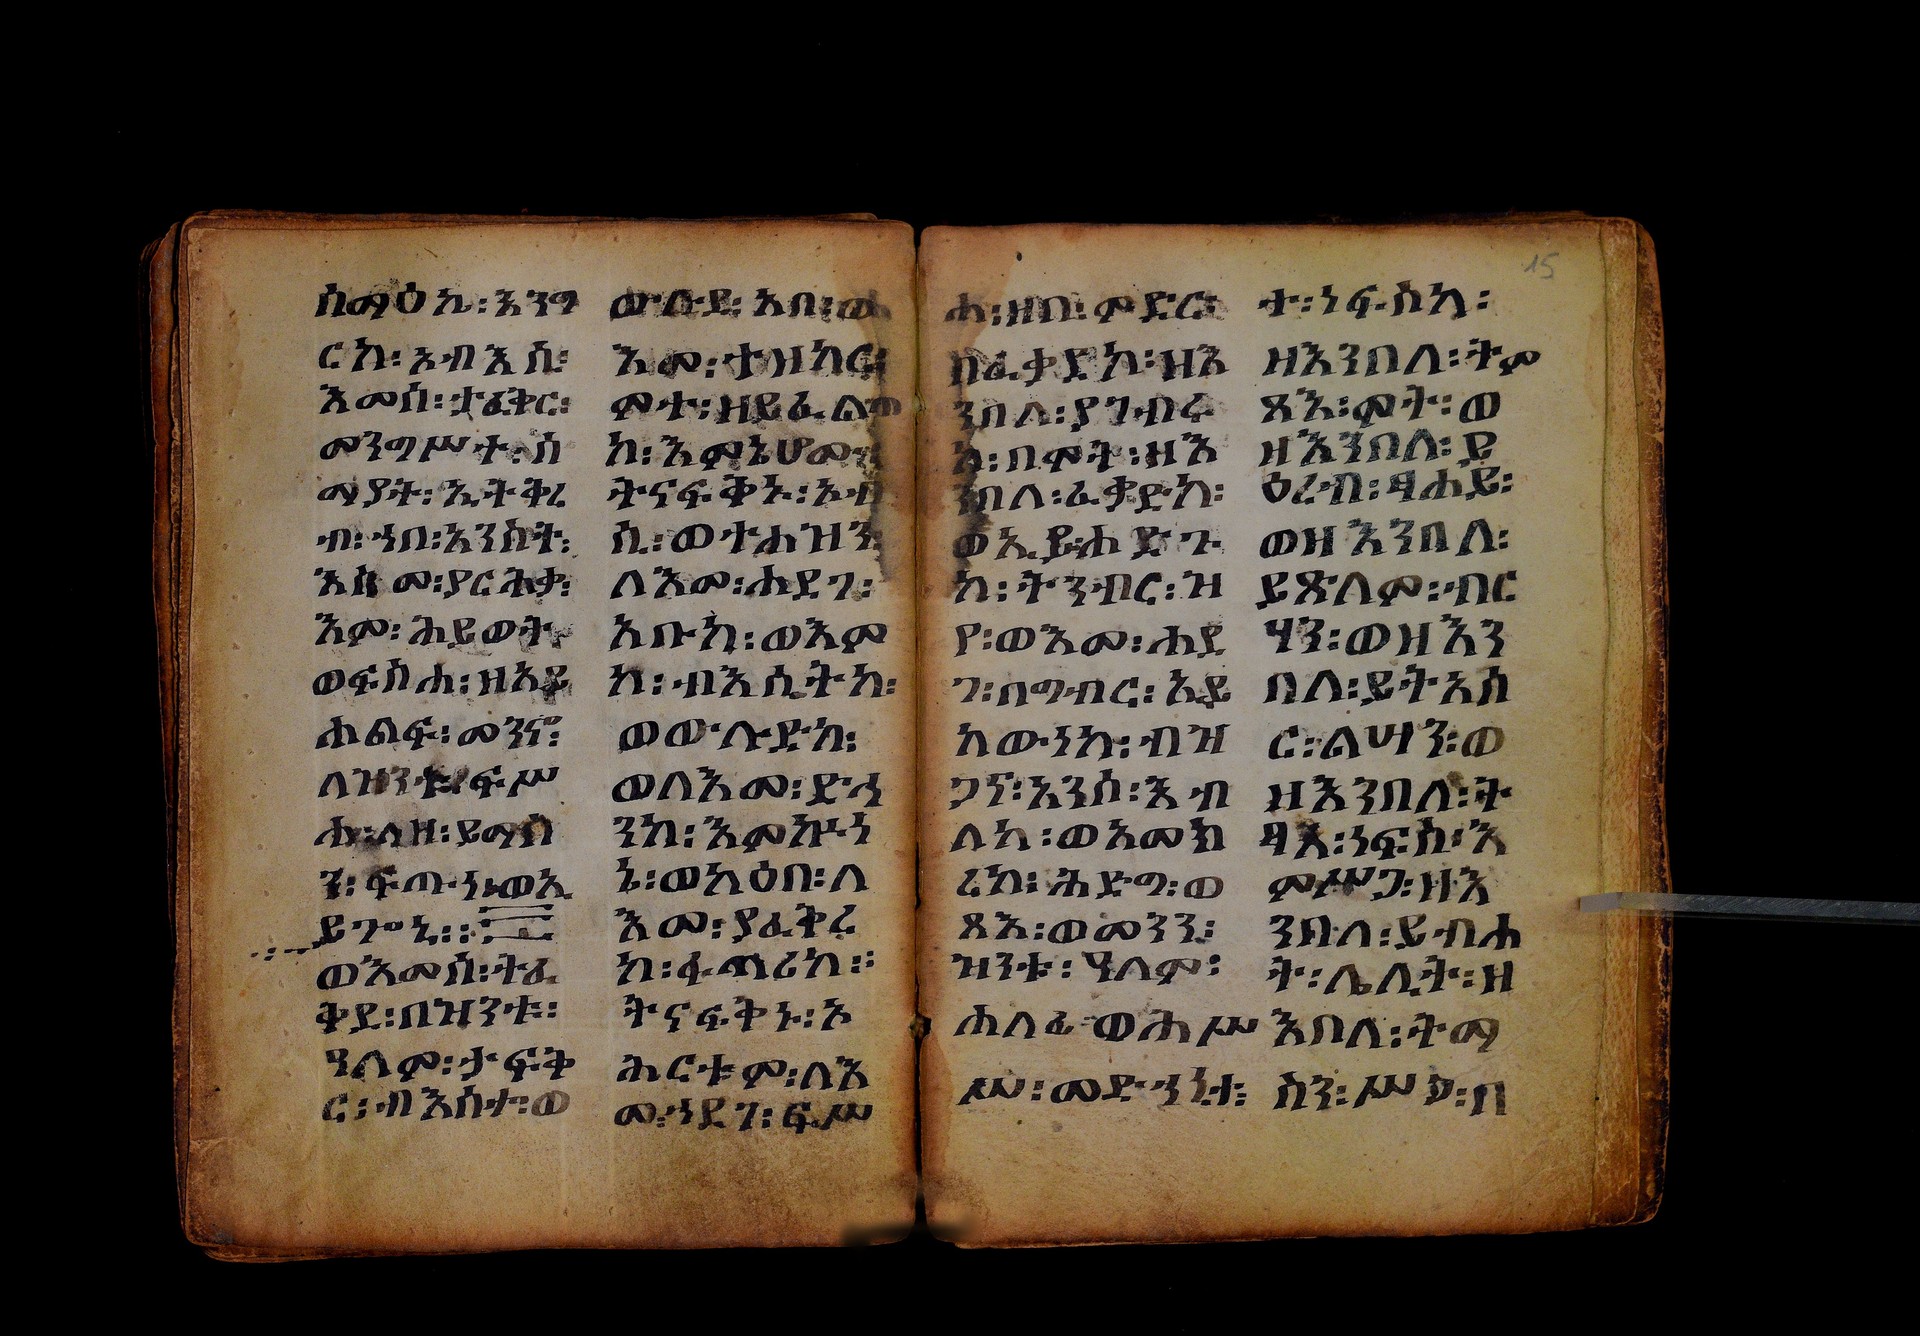 ስማዕኬ፡እንግ
ርከ፡አብእስ፡
እመሰ፡ታፈቅር፡
መንግሥተ፡ሰ
ማያት፡ኢትቅረ
ብ፡ኀበ፡አንስት፡
እስመ፡ያርሕቃ፡
እም፡ሕይወት፡
ወፍስሐ፡ዘአይ
ሐልፍ፡መንኖ፡
ለዝንቱ፡ፍሥ
ሐ፡ለዘ፡ይማስ
ን፡ፍጡነ፡ወኢ
ይጐኒ፡፡
ወእመሰ፡ትፈ
ቅደ፡በዝንቱ፡
ዓለም፡ታፍቅ
ር፡ብእስተ፡ወ
ውሉደ፡አበ፡ወ
እመ፡ተዝከር፡
ሞተ፡ዘይፈልጠ
ከ፡እምኔሆሙ፡
ትናፍቅኑ፡አብ
ሲ፡ወተሐዝን፡
ለእመ፡ሐደገ፡
አቡከ፡ወእም
ከ፡ብእሲትከ፡
ወውሉድከ፡
ወለእመ፡ድኅ
ንከ፡እምኵነ
ኔ፡ወአዕበ፡ለ
እመ፡ያፈቅረ
ከ፡ፋጣሪከ፡፡
ትናፍቅኑ፡አ
ሕርቱም፡ለእ
መ፡ኀደገ፡ፍሥ
ሐ፡ዘበ፡ምድር፡
በፈቃደከ፡ዘእ
ንበለ፡ያገብሩ
ከ፡በሞት፡ዘእ
ንበለ፡ፈቃድከ፡
ወኢይሐድጉ
ከ፡ትንብር፡ዝ
የ፡ወእመ፡ሐደ
ገ፡በግብር፡አይ
ከውነከ፡ብዝ
ኃኖ፡አንሰ፡እብ
ለከ፡ወአመክ
ረከ፡ሕድግ፡ወ
ጻእ፡ወመንን፡
ዝንቱ፡ዓለም፡
ሐለፊ ወሕሥ
ሥ፡መድኀኒተ፡
ተ፡ነፍስከ፡
ዘእንበለ፡ትም
ጻእ፡ሞት፡ወ
ዘእንበለ፡ይ
ዕረብ፡ፃሐይ፡
ወዘእንበለ፡
ይጽለም፡ብር
ሃን፡ወዘእን
በለ፡ይትአሰ
ር፡ልሣን፡ወ
ዘእንበለ፡ት
ፃእ፡ነፍስ፡እ
ምሥጋ፡ዘእ
ንበለ፡ይብሐ
ት፡ሌሊት፡ዘ
እበለ፡ትማ
ስን፡ሥጋ፡በ
15